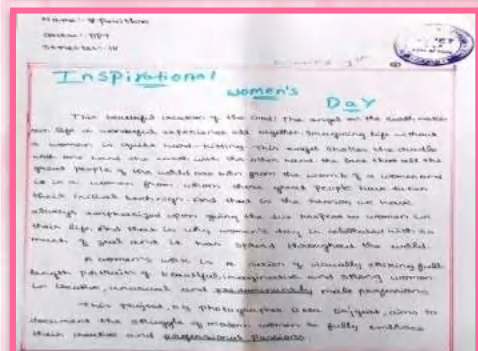 Name:-
Semester:- IV
Inspirational
Women's
Day
This beautiful creation of the God! The angel on the earth makes
our life a wonderful experience all together. Imagining life without
a women is quite hard-hitting. This angel shakes the cradle
with one hand the world with the other hand. the
great people of the world are born from the womb of a women and
it is a women from whom these great people have taken
their initial teachings. And that is the reason we have
always emphasized upon giving the due respect to women in
their life. And that is why women's day is celebrated with so
much of zeal and it has spread throughout the world.
A women's work is a series of visually striking full
length portraits of beautiful, imaginative and strong women
in creative, unusual and predominantly male professions
This project, by photographer aims to
document the struggle of modern women to fully embrace
their creative and professional passions.